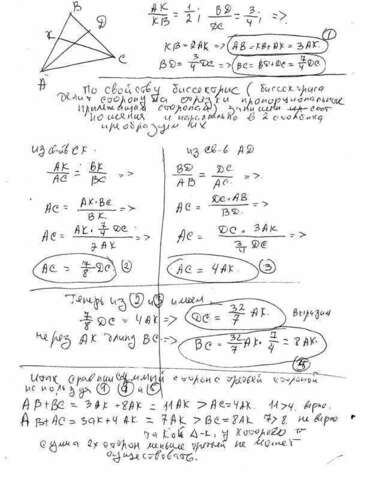 B
D
K
C
A
AK/KB = 1/2; BD/DC = 3/4; =>
KB = 2AK => AB = KB + AK = 3AK. (1)
BD = 3/4 DC => BC = BD + DC = 7/4 DC
По свойству биссектрис (биссектриса
делит сторону на отрезки пропорциональные
прилежащим сторонам)
ношения и параллельно в 2 столбика
преобразуем их
из св-ва CK.
AK/AC = BK/BC =>
AC = AK·BC/BK =>
AC = AK·7/4 DC/2AK =>
AC = 7/8 DC (2)
из св-в AD
BD/AB = DC/AC =>
AC = DC·AB/BD =>
AC = DC·3AK/3/4 DC =>
AC = 4AK. (3)
Теперь из (2) и (3) имеем
7/8 DC = 4AK => DC = 32/7 AK. Выразим
через AK длину BC => BC = 32/7 AK · 7/4 = 8AK.
Итак сравним суммы сторон с третьей стороной
используя
AB + BC = 3AK + 8AK = 11AK > AC = 4AK. 11 > 4. верно.
AB + AC = 3AK + 4AK = 7AK > BC = 8AK 7 > 8 не верно
такой Δ-к, у которого
сумма 2х сторон меньше третьей не может
существовать.